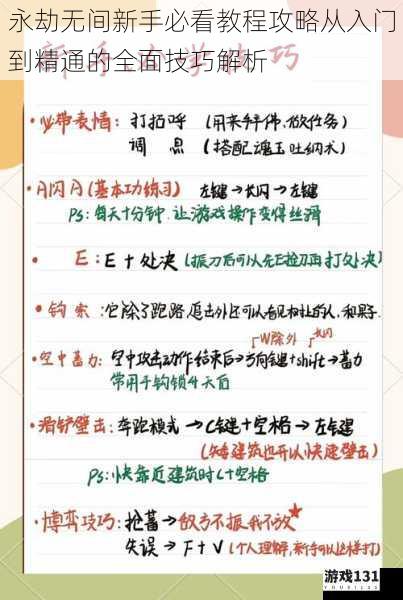 永劫无间新手必看教程攻略从入门
到精通的全面技巧解析
巧
·必带表情：打招呼（用来拜佛.做任务）
调息（搭配魂玉吐纳术）
·A闪A（基本功练习）左键→长闪→左键
PS：每天十分钟.让游戏操作变得丝滑
·E：E+处决（振刀后可以先E捡刀再打处决）
·钩索：它除了跑路.追击外还可以看见树上的人.和影子.
W除外 长闪
·空中蓄力：空中攻击动作结束后→方向键+shift→蓄力
常用于钩锁4天后
·滑铲壁击：奔跑模式→C键+空格→左键
建筑也可以快速壁击）
PS：快靠近建筑时C+空格
·博弈技巧：抢蓄→敌方不振我不放
失误→F+V（个人理解，新手可以这样打）
游戏131
YOUXI131